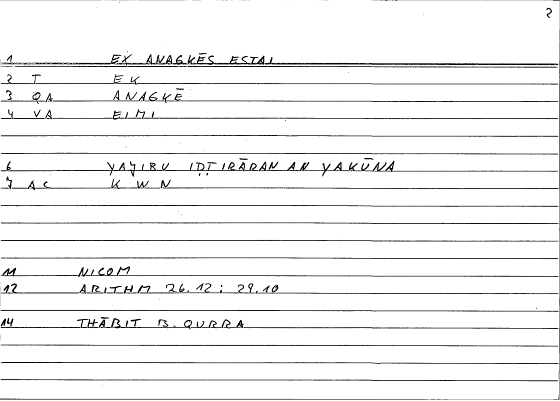 2
1 EX ANAGKĒS ESTAI
2 T EK
3 QA ANAGKĒ
4 VA EIMI
6 YAǦIBU IḌṬIRĀRAN AN YAKŪNA
7 AC K W N
11 NICOM
12 ARITHM 26.12 ; 29.10
14 THĀBIT B. QURRA